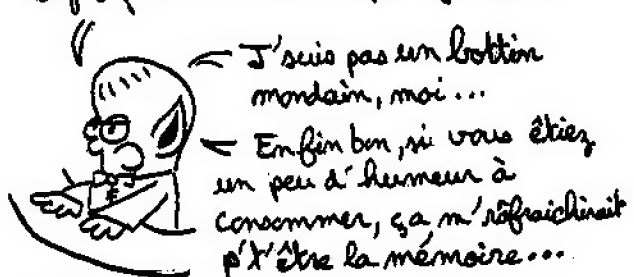 J'suis pas un bottin
mondain, moi...
Enfin bon, si vous êtiez
un peu d'humeur à
consommer, ça m'râfraichirait
p't'être la mémoire...